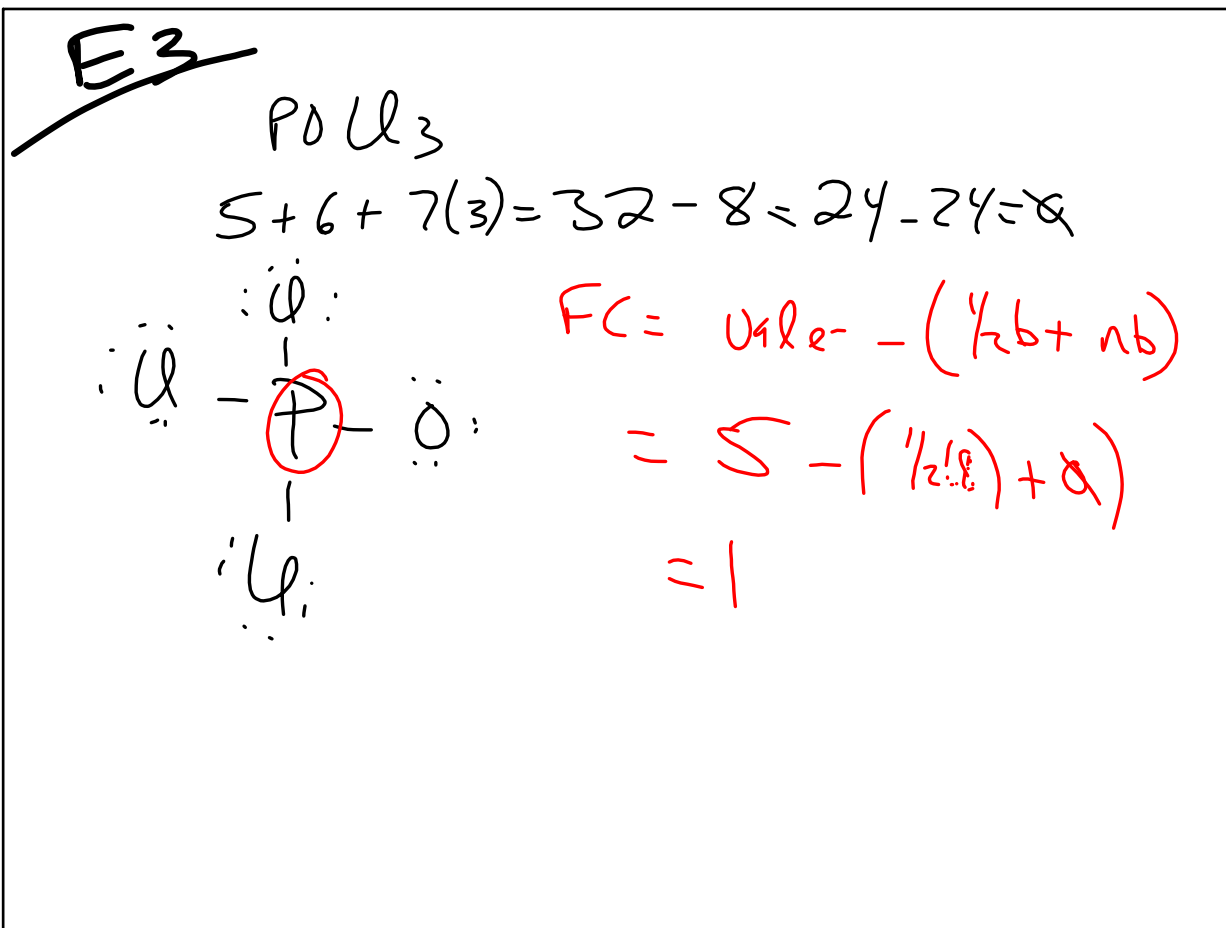 E3
POCl3
5 + 6 + 7(3) = 32 - 8 = 24 - 24 = 0
Cl
Cl - P - O
Cl
FC = val e- - (1/2b + nb)
= 5 - (1/2(8) + 0)
= 1